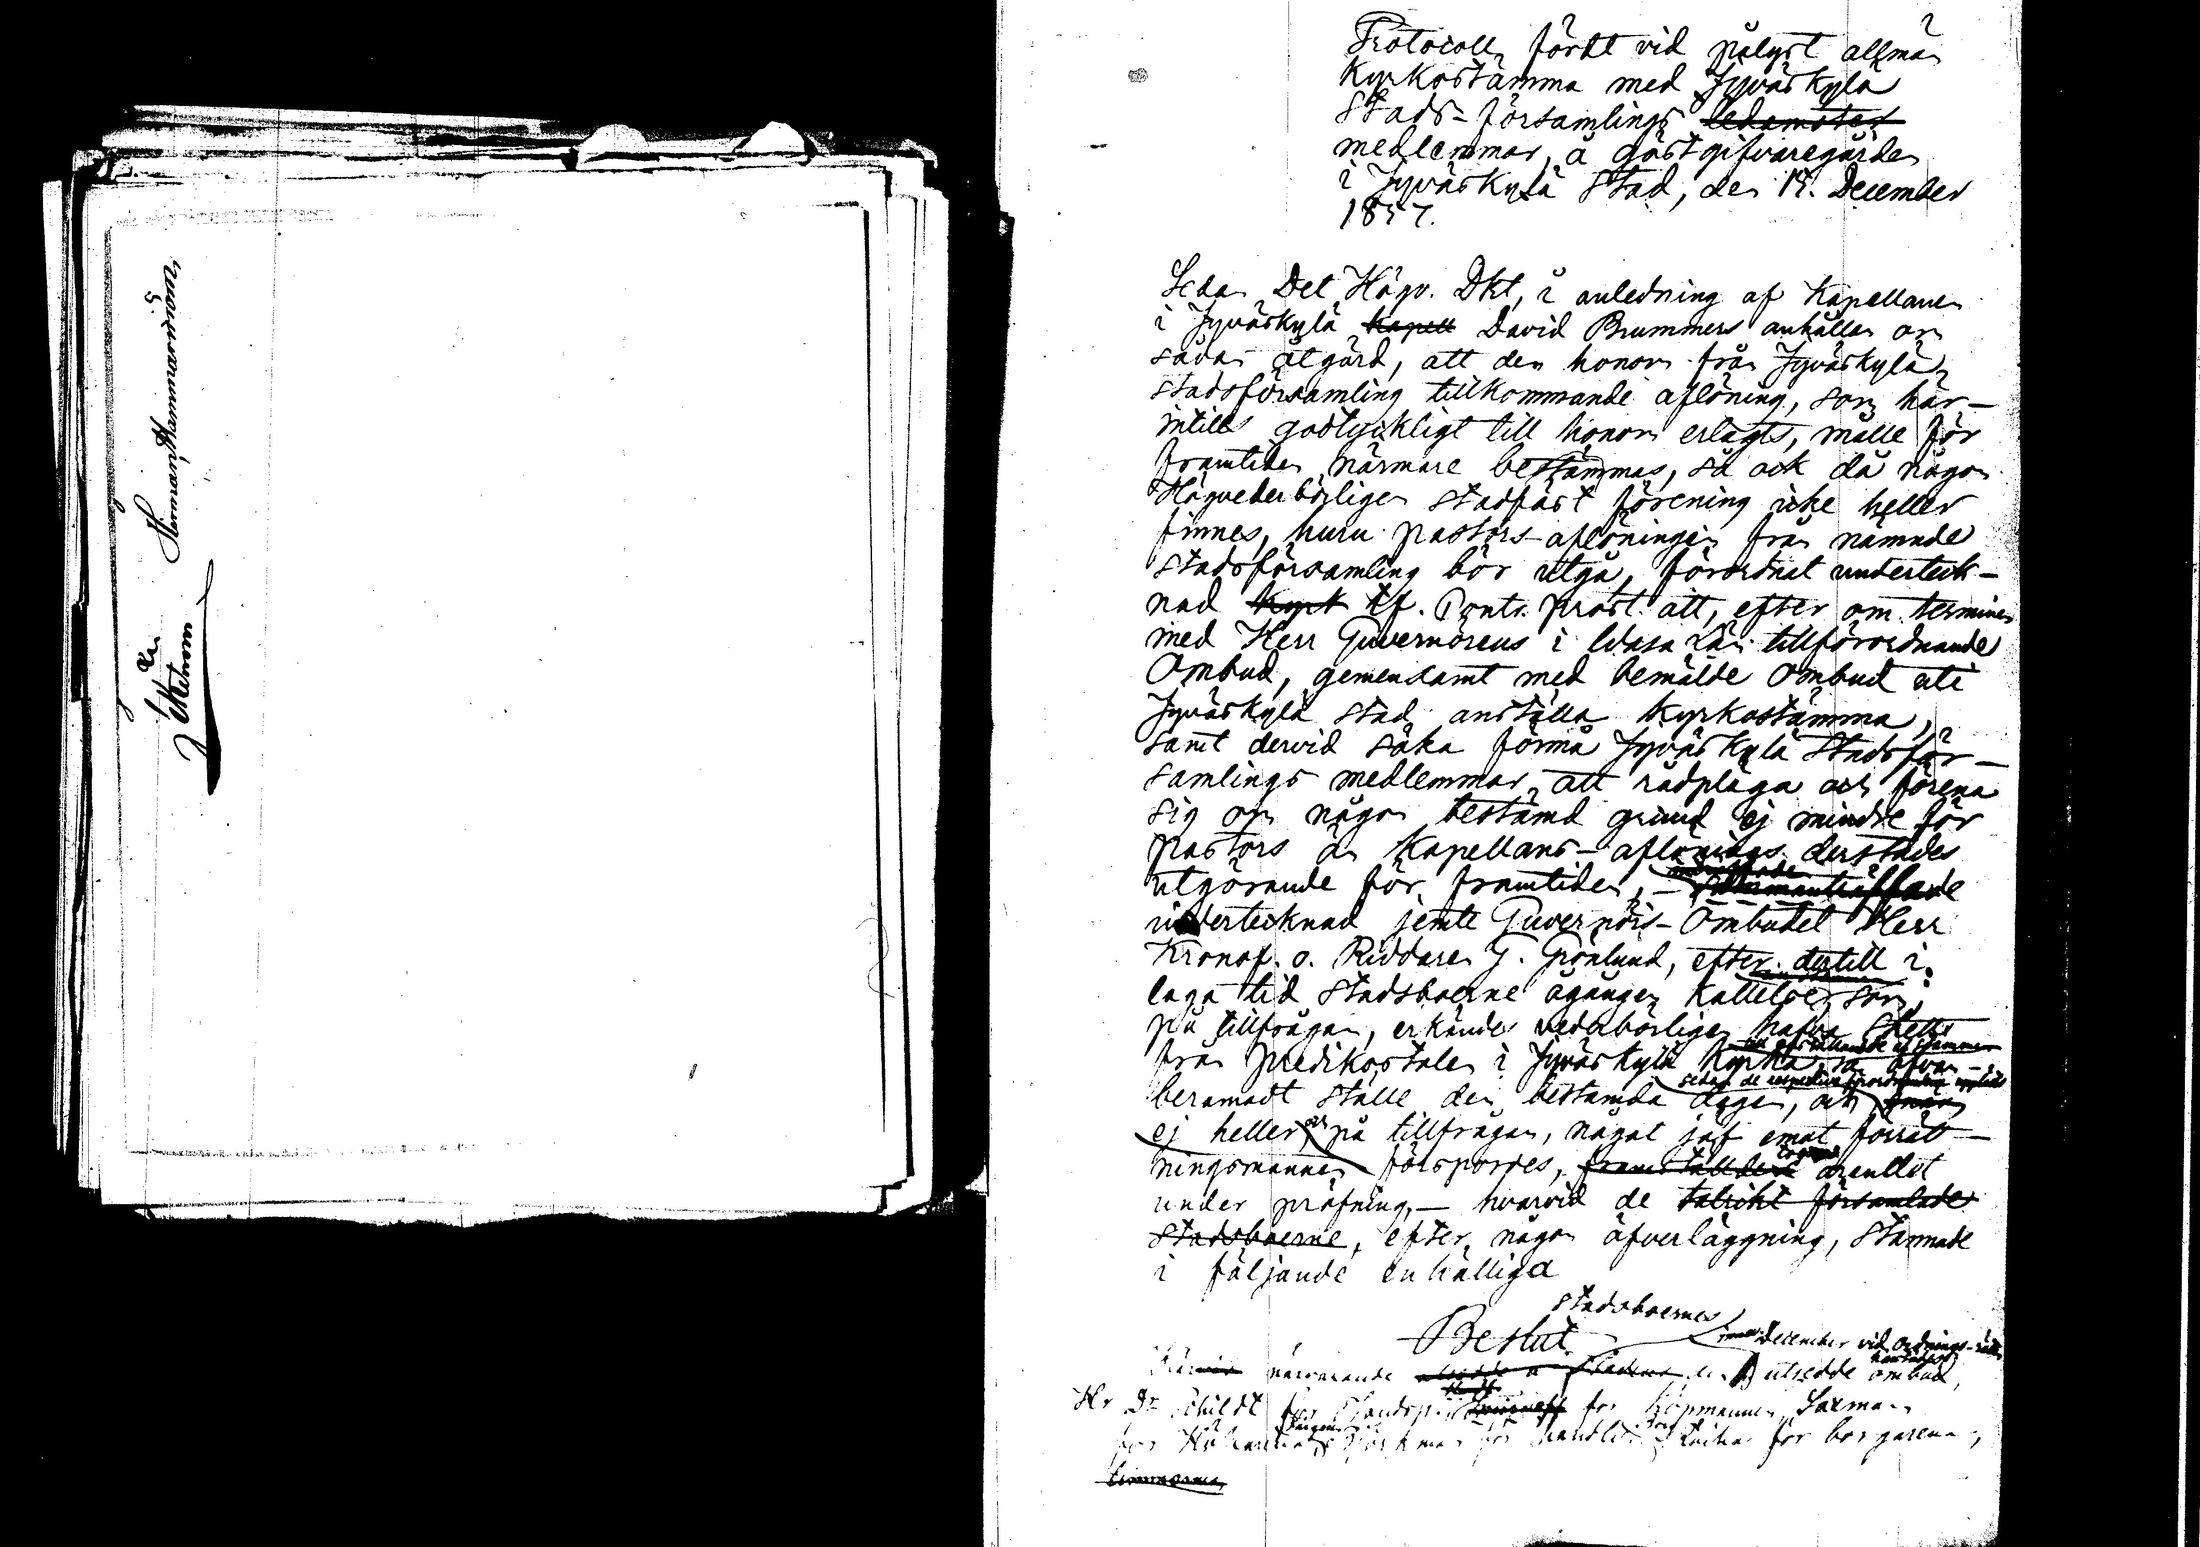 Herman Hammarström,
Protocoll, fördt vid pålyst allmän
Kyrkostämma med Jyväskylä
Stads-församlings ledamöter
medlemmar, å gästgifvaregården
i Jyväskylä Stad, den December
1857.
Sedan Det Högv. Dkt, i anledning af Kapellanen
i Jyväskylä Kapell David Brummers anhållan om
sådan åtgärd, att den honom från Jyväskylä
stadsförsamling tillkommande aflöning, som här-
intills godtyckligt till honom erlagts, måtte för
framtiden närmare bestämmas, så ock då någon
Högvederbörligen stadfäst förening icke heller
finnes, huru pastors-aflöningen från nämnde
stadsförsamling bör utgå, förordnat underteck-
nad tf. Contr. prost. att, efter öm. termins
med Herr Guvernörens i Wasa Län tillförordnande
Ombud, gemensamt med bemälde Ombud uti
Jyväskylä stad anställa Kyrkostämma,
samt dervid söka förmå Jyväskylä Stadsför-
samlings medlemmar, att rådpläga och förena
sig om någon bestämd grund ej mindre för
pastors än Kapellans-aflönings derstädes
utgörande för framtiden, - sammanträffade
undertecknad jemte Guvernörs-Ombudet Herr
Kronof. o. Riddaren G. Grönlund, efter dertill i
laga tid stadsboerne ågången kallelse, som,
på tillfrågan, erkändes vederbörligen hafva skett
från predikostolen i Jyväskylä Kyrka, å ofvan-
beramadt ställe den bestämda dagen, och
ej heller, på tillfrågan, något jäf emot förrätt-
ningsmannen förspordes, framställdes ärendet
under pröfning, - hvarvid de talrikt församlade
Stadsboerne, efter någon öfverläggning, stannade
i följande enhälliga
stadsboernes
Beslut
December vid Ordnings-rätten
närvarande utsedde ombud,
Hr Dr Schildt för Ståndsp. för Köpmannen Saxman
för handl. för borgarena,